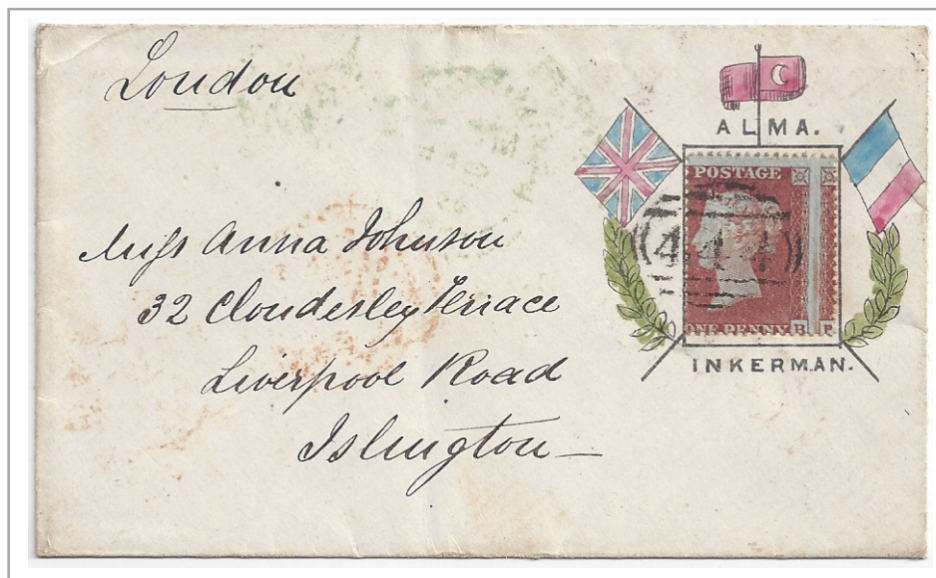 London
ALMA.
POSTAGE
444
ONE PENNY B P
INKERMAN.
Miss Anna Johnson
32 Cloudesley Terrace
Liverpool Road
Islington